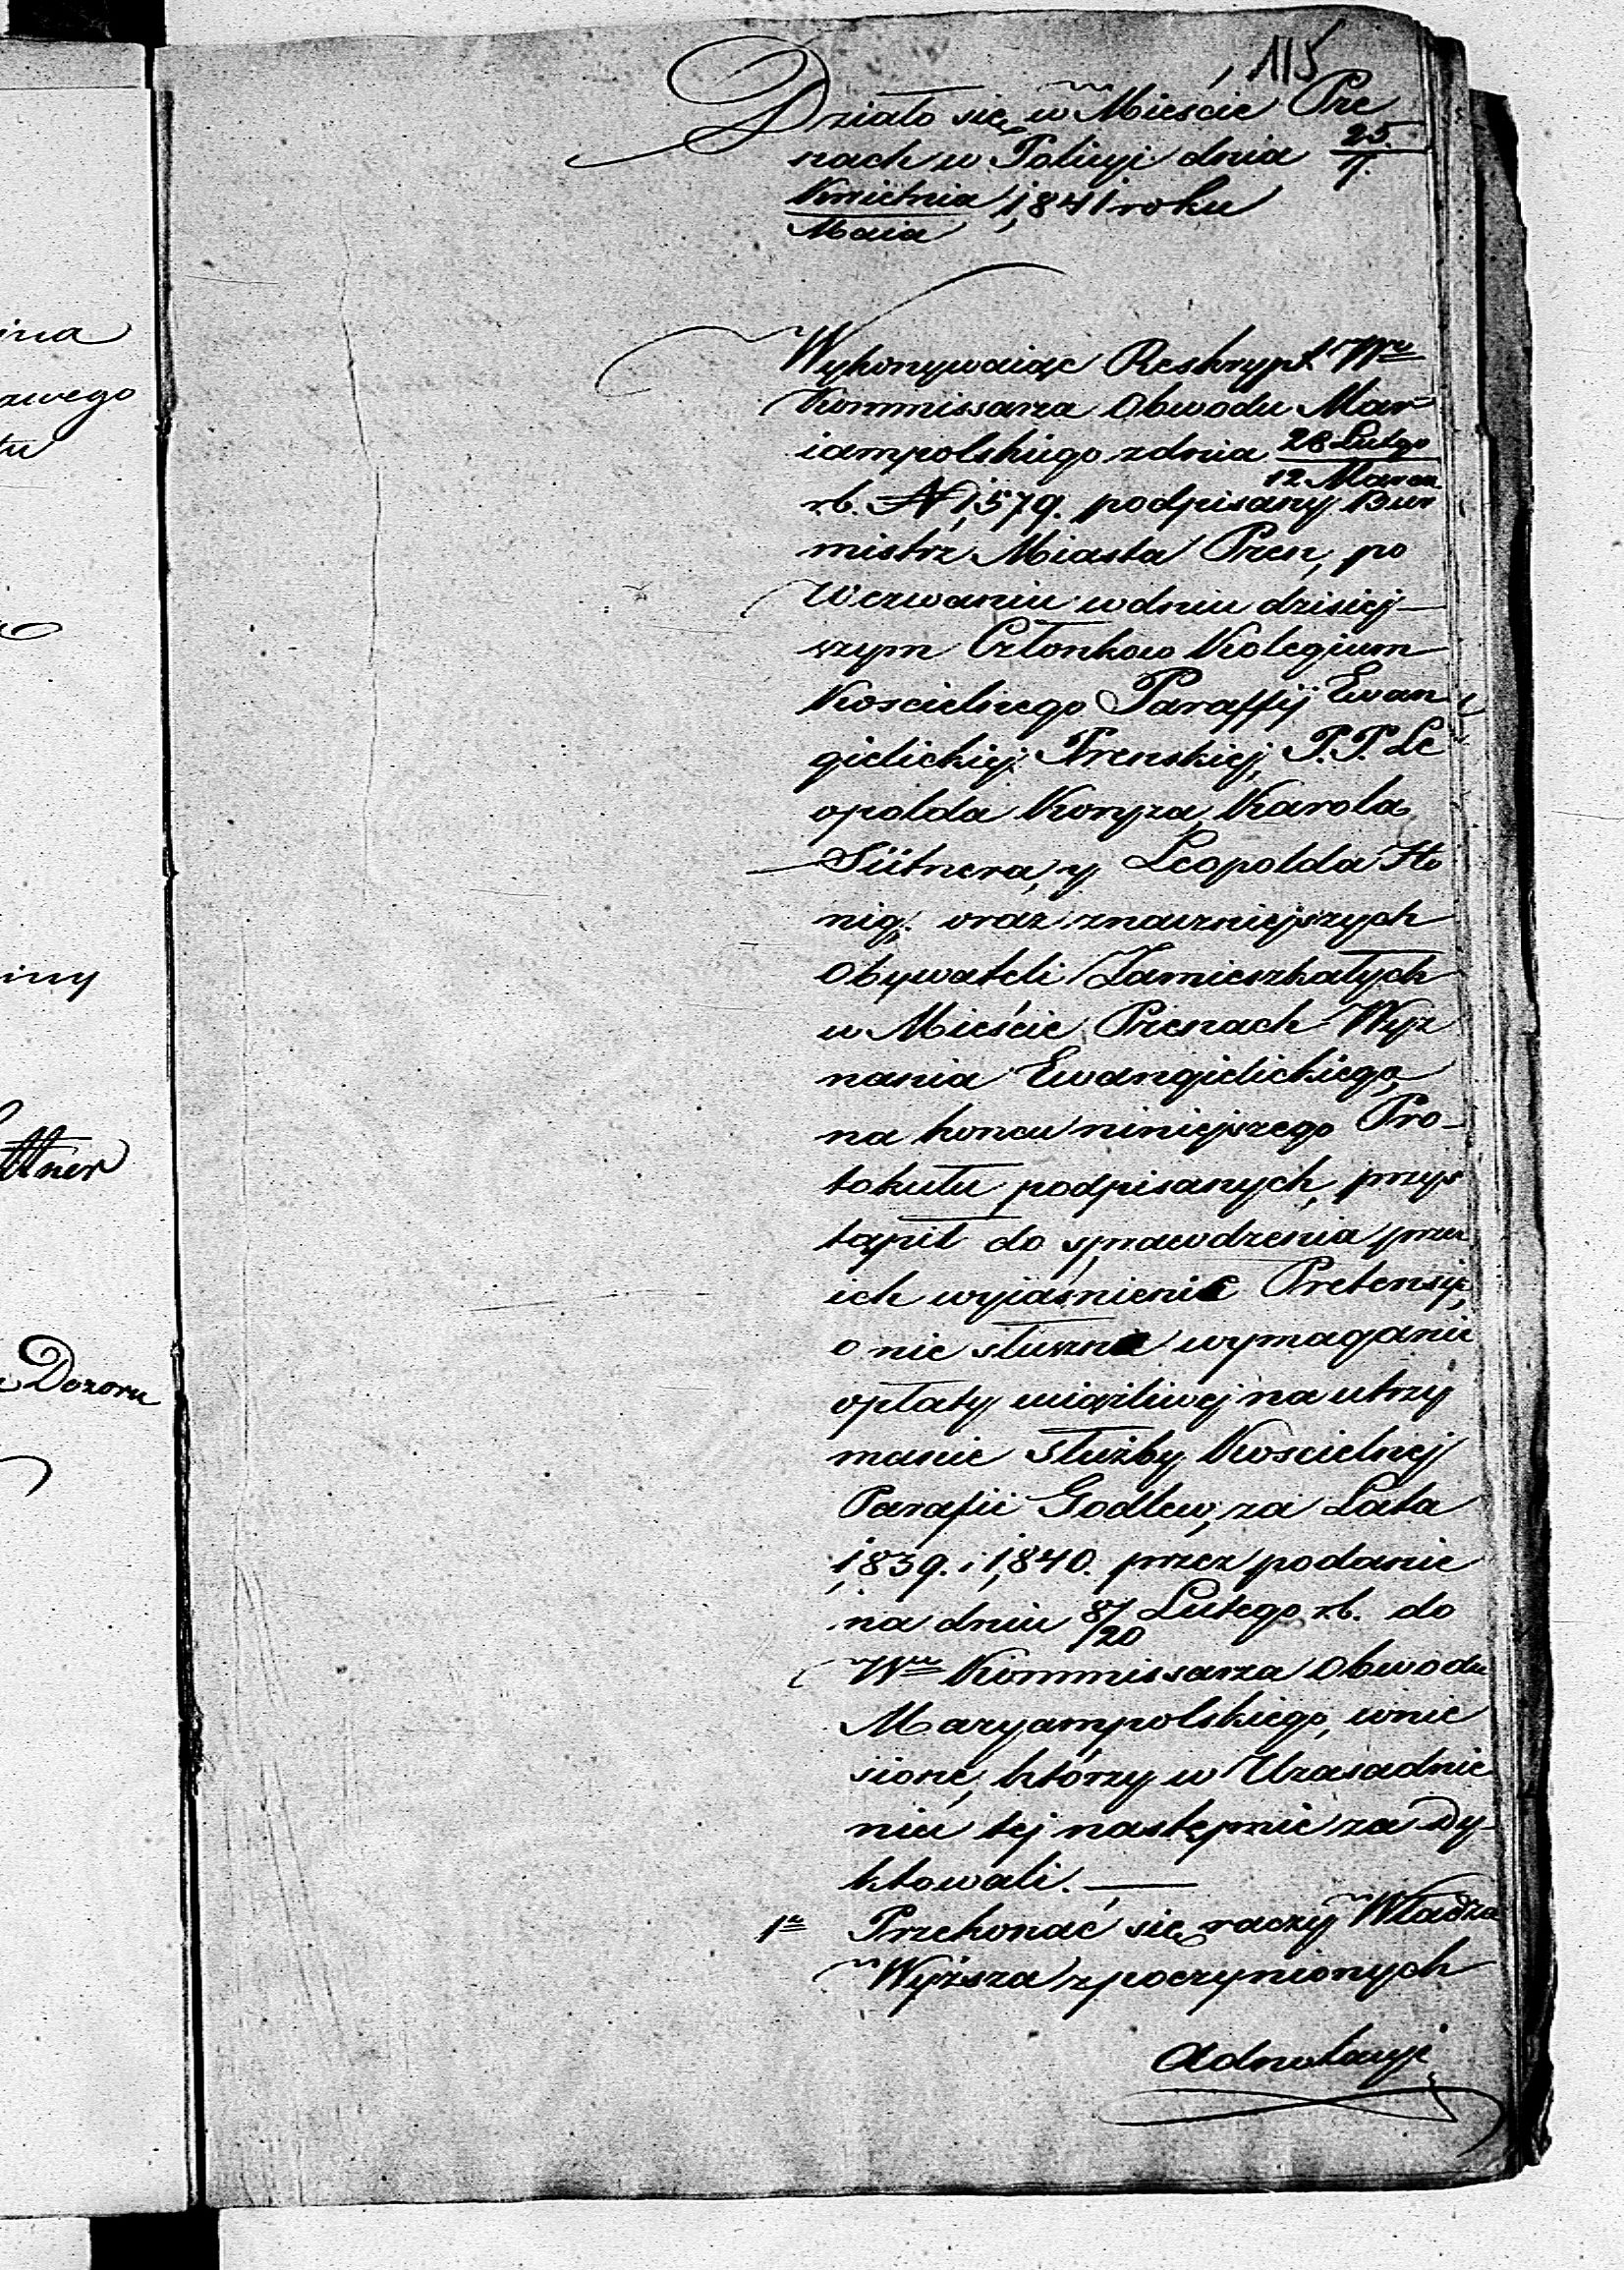 115
Działo się w Mieście Pre
nach w Policyi dnia 25./7.
Kwietnia/Maia 1841 roku
Wykonywaiąc Reskrypt Wgo
Kommissarza Obwodu Mar
iampolskiego z dnia 28 Lutego/12 Marca
r.b. N 1579. podpisany Bur
mistrz Miasta Pren, po
Wezwaniu w dniu dzisiej
szym Członkow Kolegium
Koscielnego Paraffij Ewan
gielickiej Prenskiej, P.P. Le
opolda Konyza, Karola
Sütnera, y Leopolda Ho
nig. oraz znaczniejszych
Obywateli Zamieszkałych
w Mieście Prenach Wyz
nania Ewangielickiego,
na koncu niniejszego Pro-
tokułu podpisanych, przys
tąpił do sprawdzenia przez
ich wyiaśnienie Pretensyi,
o nie słuszne wymaganie
opłaty uciążliwej na utrzy
manie Służby Koscielnej
Parafii Godlew, za Lata
1839. i 1840. przez podanie
na dniu 8/20 Lutego r.b. do
Wgo Kommissarza Obwodu
Maryampolskiego, wnie
sione, którzy w Uzasadnie
niu tej następnie za dy
ktowali.
1e Przekonać się raczy Władza
Wyższa z poczynionych
Adnotacyi
ina
awego
tu
iny
ttner
Dozoru